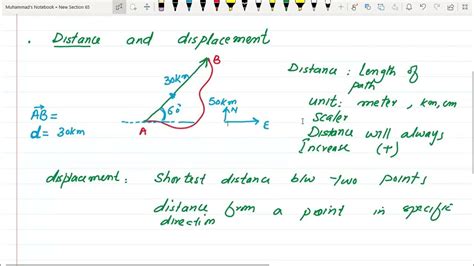 Muhammad's Notebook • New Section 65
. Distance and displacement
B
30km
60°
A
50km
N
E
AB =
d = 30km
Distance : Length of
path
unit: meter, km, cm
Scaler
Distance will always
Increase (+)
displacement : Shortest distance b/w two points
distance from a point in specific
direction